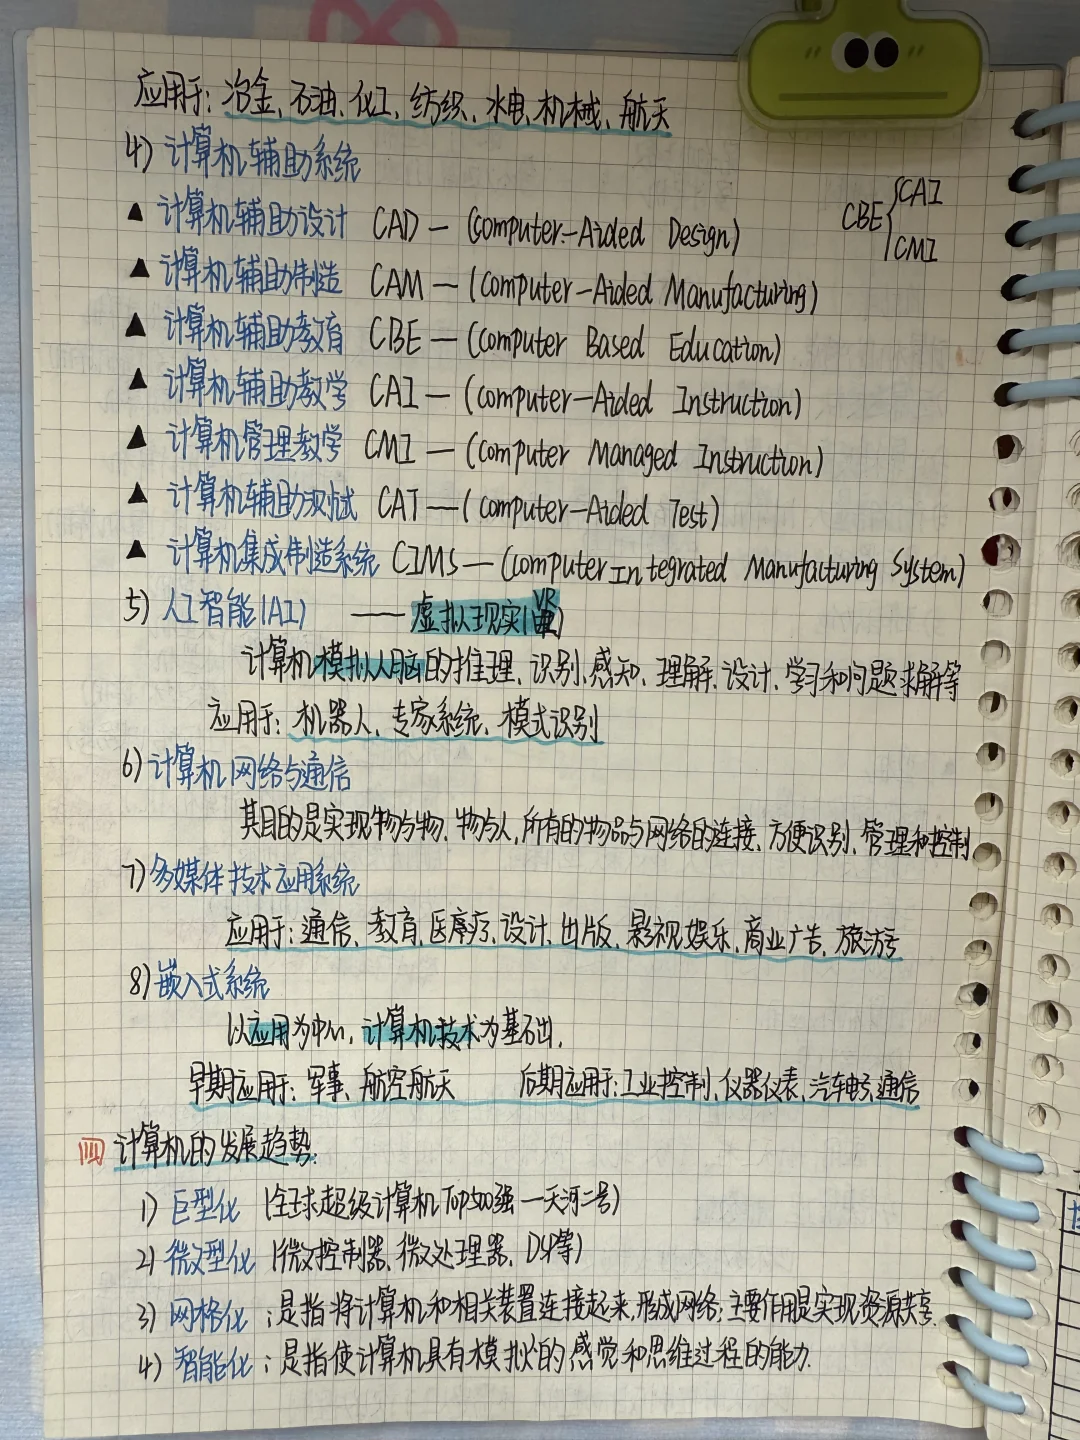 应用于：冶金、石油、化工、纺织、水电、机械、航天
4）计算机辅助系统
▲ 计算机辅助设计 CAD —（Computer-Aided Design）
CBE { CAI
CMI
▲ 计算机辅助制造 CAM —（Computer-Aided Manufacturing）
▲ 计算机辅助教育 CBE —（Computer Based Education）
▲ 计算机辅助教学 CAI —（Computer-Aided Instruction）
▲ 计算机管理教学 CMI —（Computer Managed Instruction）
▲ 计算机辅助测试 CAT —（Computer-Aided Test）
▲ 计算机集成制造系统 CIMS —（Computer Integrated Manufacturing System）
5）人工智能（AI） —— 虚拟现实（VR）
计算机模拟人脑的推理、识别、感知、理解、设计、学习和问题求解等
应用于：机器人、专家系统、模式识别
6）计算机网络与通信
其目的是实现物与物、物与人，所有的物品与网络的连接、方便识别、管理和控制
7）多媒体技术应用系统
应用于：通信、教育、医疗、设计、出版、影视娱乐、商业广告、旅游
8）嵌入式系统
以应用为中心，计算机技术为基础，
早期应用于：军事、航空航天 后期应用于：工业控制、仪器仪表、汽车电子、通信
四 计算机的发展趋势：
1）巨型化（全球超级计算机Top500强—天河二号）
2）微型化（微控制器、微处理器、DSP等）
3）网格化；是指将计算机和相关装置连接起来，形成网络；主要作用是实现资源共享．
4）智能化；是指使计算机具有模拟人的感觉和思维过程的能力．